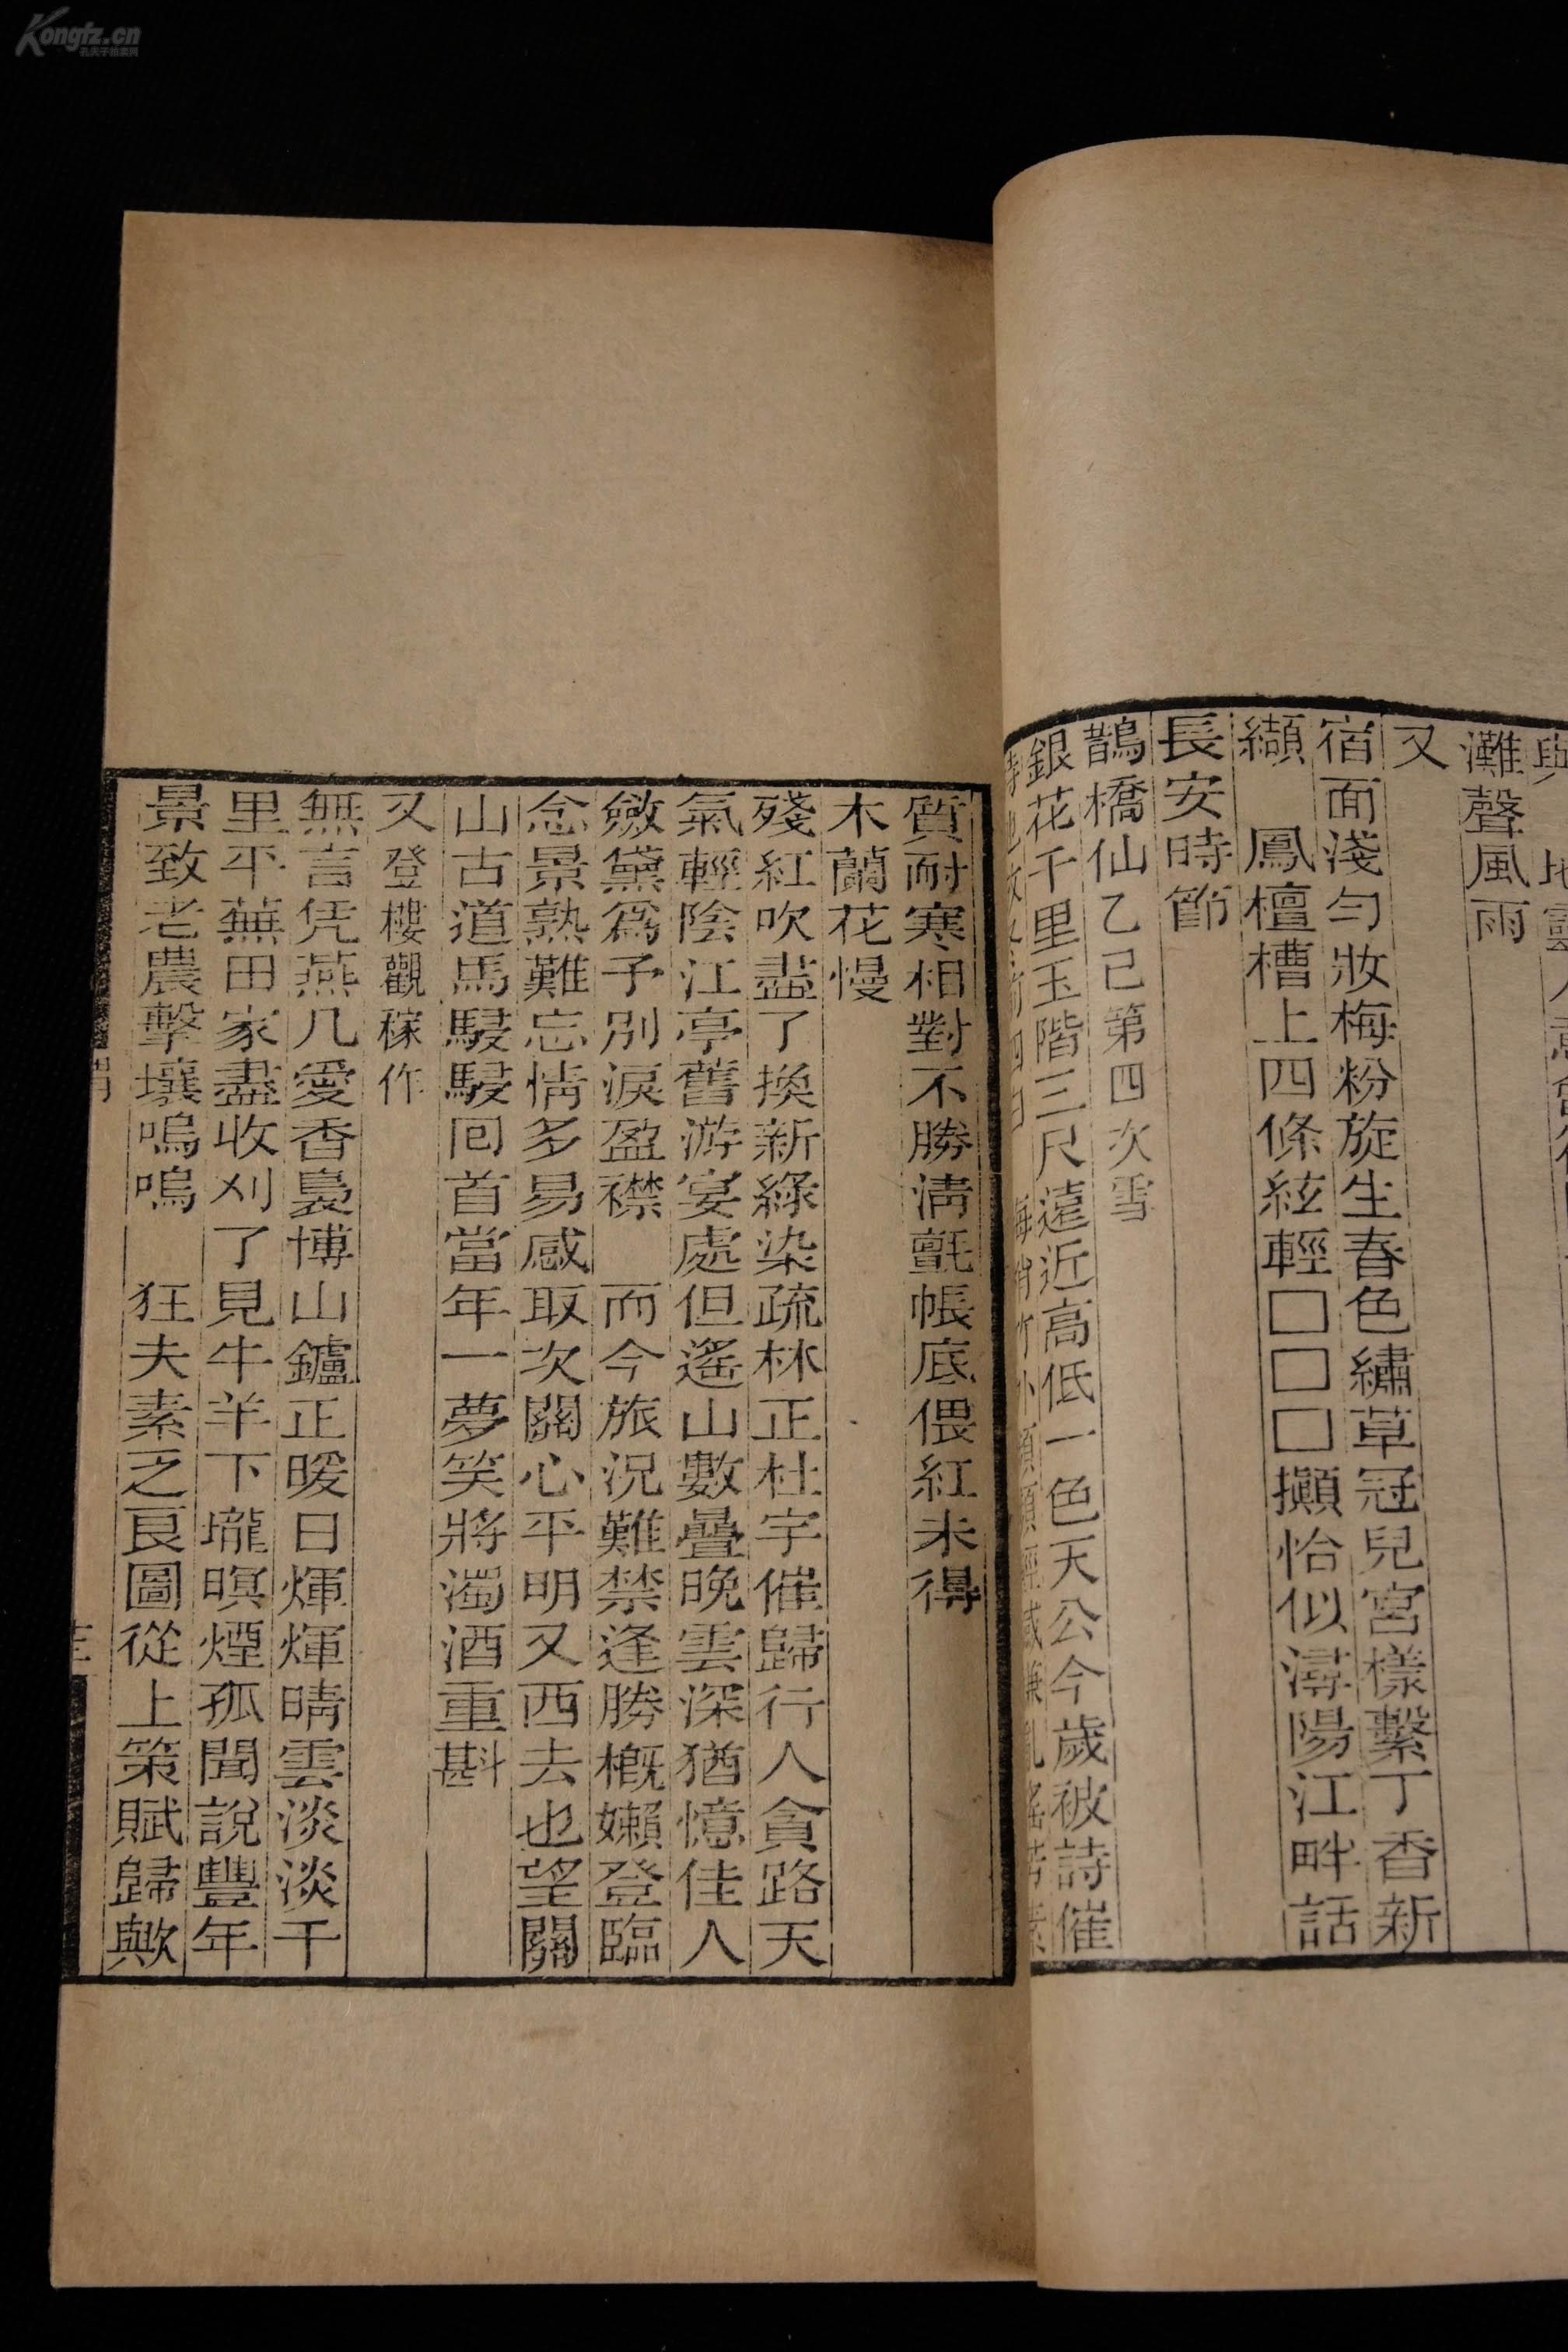 灘聲風雨
又
宿面淺勻妝梅粉旋生春色繡草冠兒宮樣繫丁香新
纈　鳳檀槽上四條絃輕□□□攧恰似潯陽江畔話
長安時節
鵲橋仙乙巳第四次雪
銀花千里玉階三尺遠近高低一色天公今歲被詩催
質耐寒相對不勝淸氈帳底偎紅未得
木蘭花慢
殘紅吹盡了換新綠染疏林正杜宇催歸行人貪路天
氣輕陰江亭舊游宴處但遙山數疊晚雲深猶憶佳人
斂黛爲予別淚盈襟　而今旅況難禁逢勝槪嬾登臨
念景熟難忘情多易感取次關心平明又西去也望關
山古道馬駸駸囘首當年一夢笑將濁酒重斟
又登樓觀稼作
無言凭燕几愛香裊博山鑪正暖日輝輝晴雲淡淡千
里平蕪田家盡收刈了見牛羊下壠暝煙孤聞說豐年
景致老農擊壤嗚嗚　狂夫素乏良圖從上策賦歸歟
Kongfz.cn